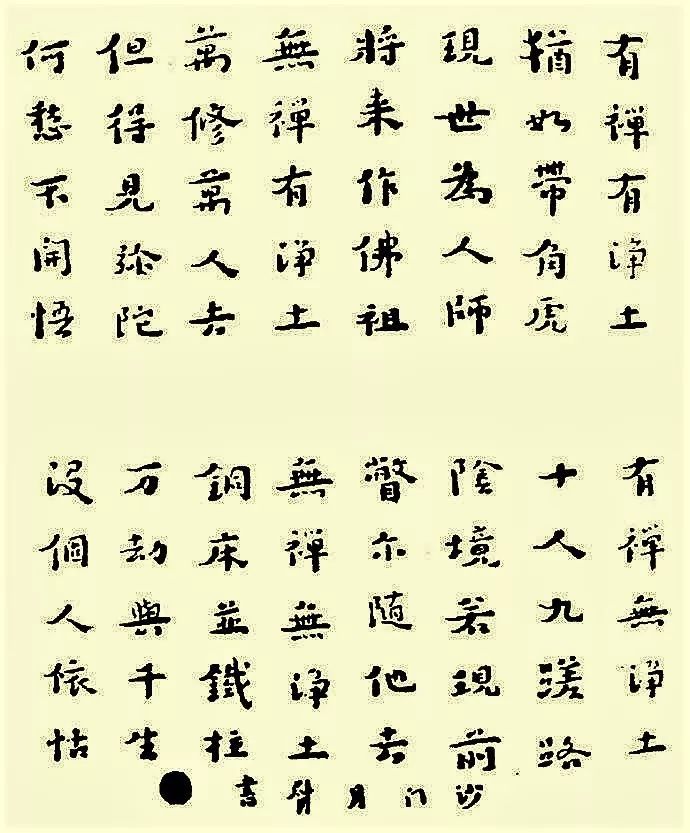 有禪有淨土
猶如帶角虎
現世為人師
將来作佛祖
無禪有淨土
萬修萬人去
但得見弥陀
何愁不開悟
有禪無淨土
十人九蹉路
陰境若現前
瞥尔随他去
無禪無淨土
銅床並鐵柱
万劫與千生
没個人依怙
沙門月臂書